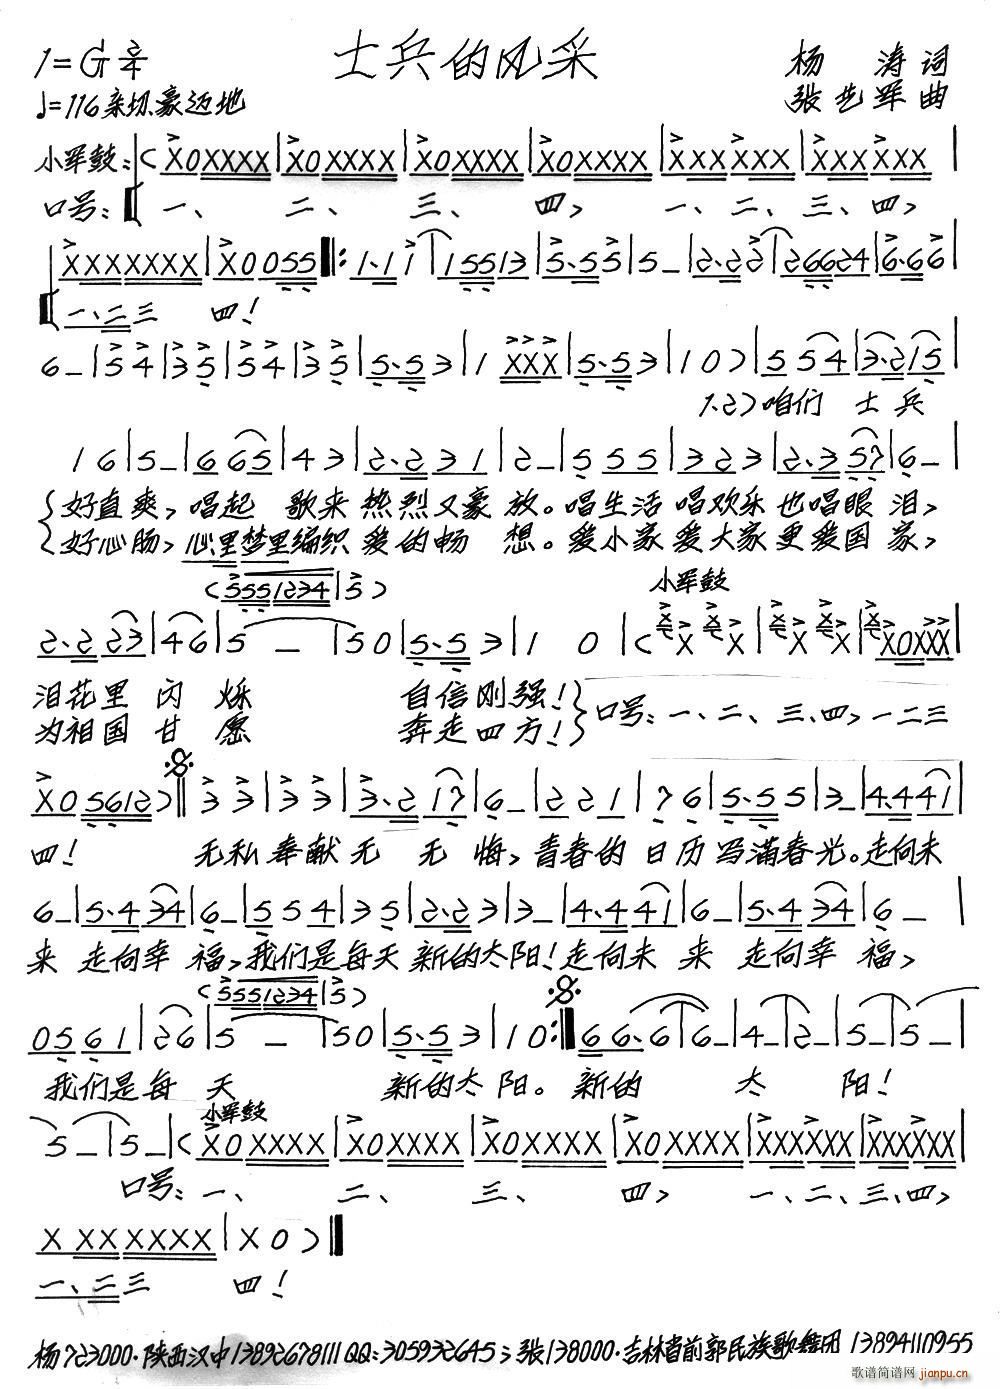 士兵的风采
1=G 2/4
杨 涛 词
♩=116 亲切、豪迈地
张艺军 曲
小军鼓:(X0XXXX|X0XXXX|X0XXXX|X0XXXX|XXX XXX|XXX XXX|
口号: 一、 二、 三、 四, 一、二、三、四,
XXXXXXX|X0 055‖: 1·1 1|15513|5·55|5–|2·22|26624|6·66|
一、二三 四!
6–|54|35|54|35|5·53|1 XXX|5·53|10)|554|3·215|
1.2.)咱们 士兵
16|5–|665|43|2·231|2–|555|323|2·357|6–|
好直爽,唱起 歌来 热烈又豪 放。唱生活 唱欢乐 也唱眼 泪,
好心肠,心里梦里编织 爱的畅 想。爱小家 爱大家 更爱国 家,
(5551234|5) 小军鼓
2·223|46|5 –|50|5·53|1 0|(X X X X|X X X X|X0XXX|
泪花里 闪 烁 自信刚强!
为祖国 甘 愿 奔走四方!
口号:一、二、三、四,一二三
X05612)‖33|33|3·217|6–|221|76|5·55|3–|4·441|
四! 无私奉献无 无 悔,青春的 日历 写满春光。走向未
6–|5·434|6–|554|35|2·23|3–|4·441|6–|5·434|6–|
来 走向幸 福,我们是每天 新的太阳!走向未 来 走向幸 福,
(5551234|5)
0561|26|5 –|50|5·53|10:‖66·6|6–|4–|2–|5–|5–|
我们是每 天 新的太 阳。新的 太 阳!
小军鼓
5–|5–|(X0XXXX|X0XXXX|X0XXXX|X0XXXX|XXXXXX|XXXXXX|
口号:一、 二、 三、 四, 一、二、三、四,
X XX XXXX|X0)‖
一、二三 四!
杨723000·陕西汉中13892678111QQ:305932645;张138000·吉林省前郭民族歌舞团 13894110955
歌谱简谱网
jianpu.cn